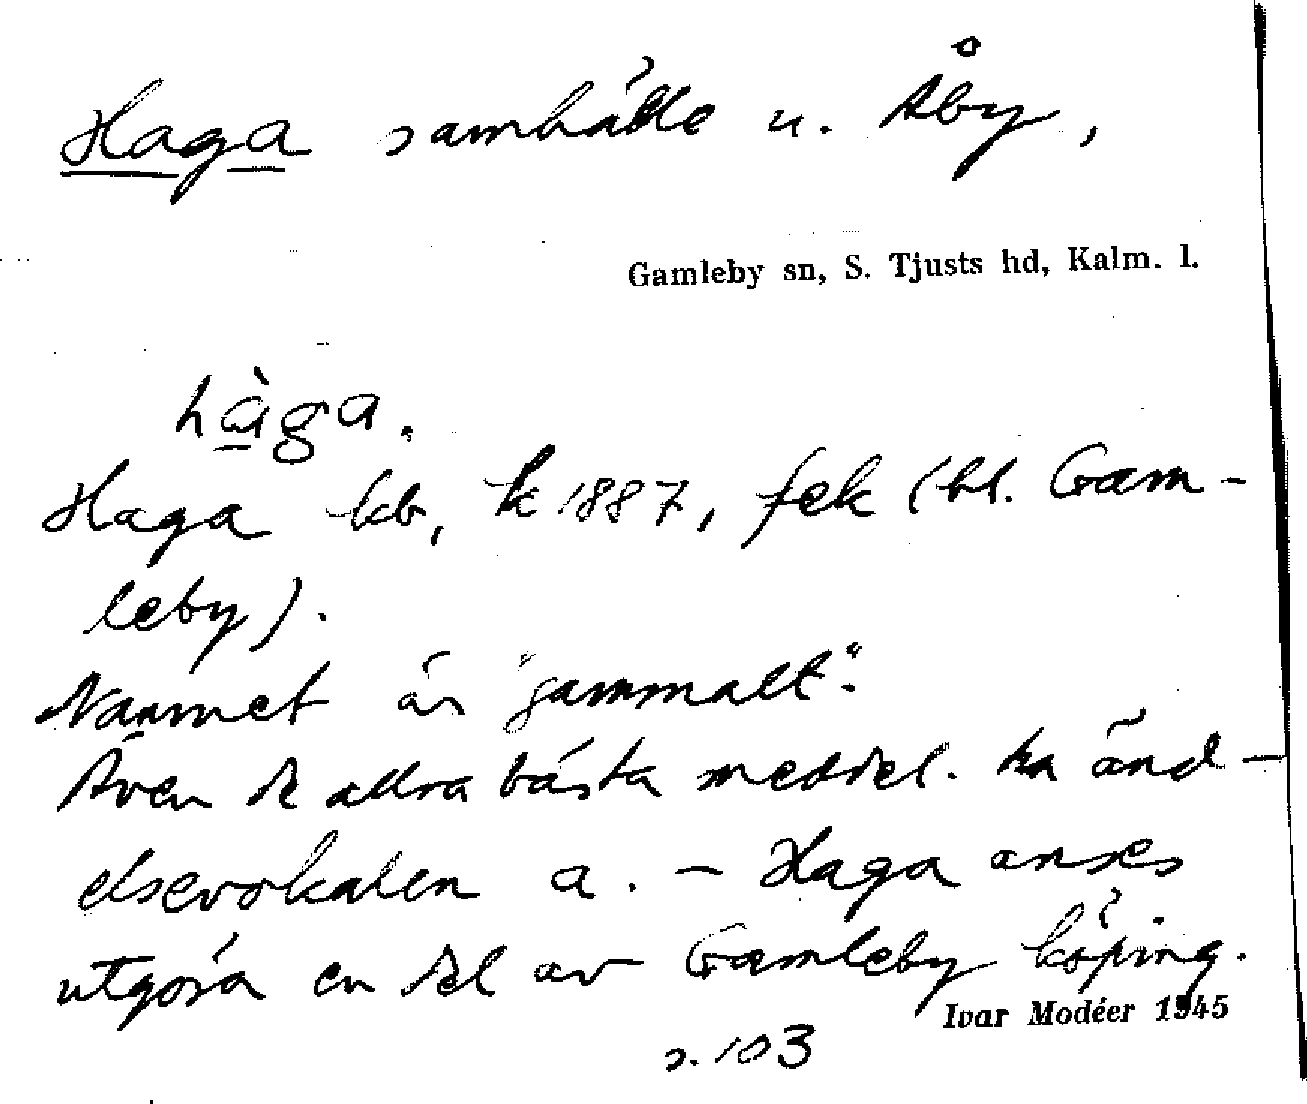 Haga samhälle u. Åby,
Gamleby sn, S. Tjusts hd, Kalm. l.
hàga.
Haga kb, k 1887, fek (bl. Gam-
leby).
Namnet är "gammalt".
Även de allra bästa meddel. ha änd-
elsevokalen a. - Haga anses
utgöra en del av Gamleby köping.
Ivar Modéer 1945
s. 103